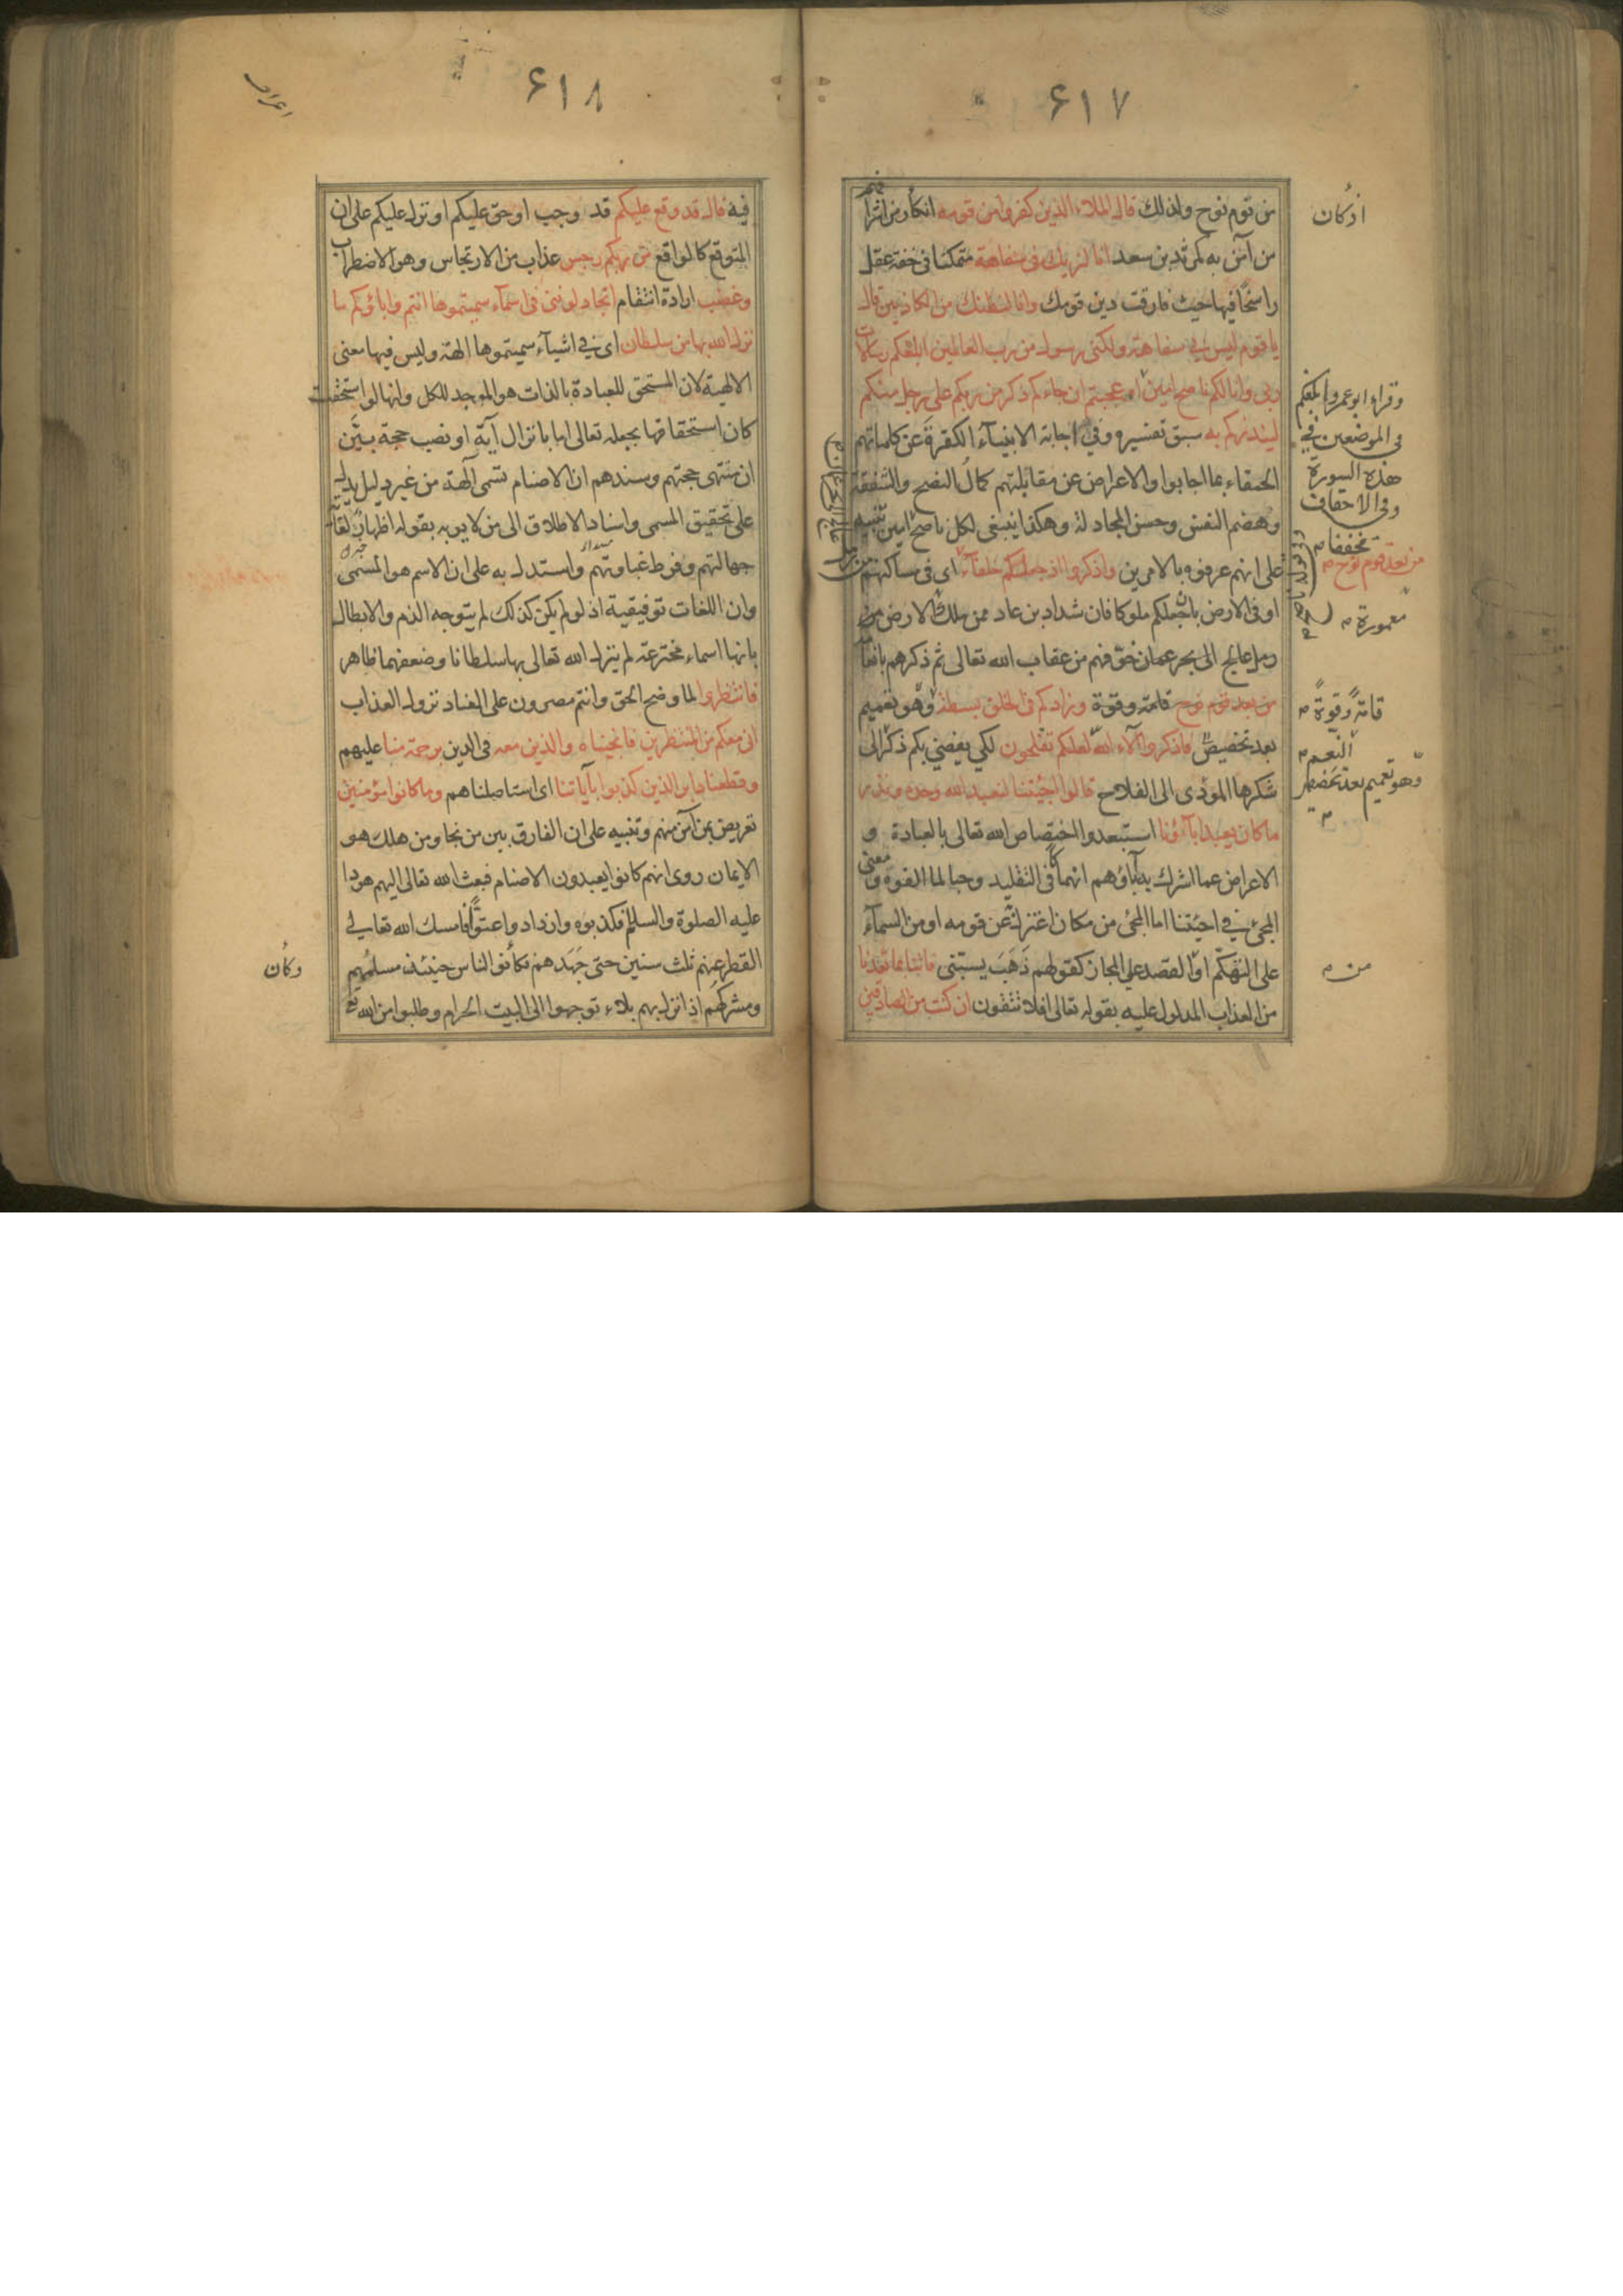 ۶۱۷
من قوم نوح ولذلك قال الملاء الذين كفروا من قومه اذ كان من اشرافهم
من آمن به كمرثد بن سعد انا لنريك فى سفاهة متمكنا فى خفة عقل
راسخا فيها حيث فارقت دين قومك وانا لنظنك من الكاذبين قال
يا قوم ليس بى سفاهة ولكنى رسول من رب العالمين ابلغكم رسالات
ربى وانا لكم ناصح امين او عجبتم ان جاءكم ذكر من ربكم على رجل منكم
لينذركم به سبق تفسيره وفى اجابة الانبيآء الكفرة عن كلماتهم
الحمقاء بما اجابوا والاعراض عن مقابلتهم كمال النصح والشفقة
وهضم النفس وحسن المجادلة وهكذا ينبغى لكل ناصح امين تنبيه
على انهم عرفوه بالامرين واذكروا اذ جعلكم خلفآء اى فى مساكنهم
او فى الارض بان جعلكم ملوكا فان شداد بن عاد ممن ملك الارض من
رمل عالج الى بحر عمان خوفهم من عقاب الله تعالى ثم ذكرهم بانعامه
من بعد قوم نوح قامة وقوة وزادكم فى الخلق بسطة وهو تعميم
بعد تخصيص فاذكروا آلاء الله لعلكم تفلحون لكي يفضي بكم ذكر الى
شكرها المؤدى الى الفلاح قالوا اجئتنا لنعبد الله وحده ونذر
ما كان يعبد اباؤنا استبعدوا اختصاص الله تعالى بالعبادة و
الاعراض عما اشرك به آباؤهم انهماكا فى التقليد وحبا لما الفوه ومعنى
المجئ في اجئتنا اما المجئ من مكان اعتزل عن قومه او من السمآء
على التهكم او القصد على المجاز كقولهم ذهب يسبنى فاتنا بما تعدنا
من العذاب المدلول عليه بقوله تعالى افلا تتقون ان كنت من الصادقين
اذ كان
وقراء ابو عمرو ابلغكم
فى الموضعين فى
هذه السورة
وفى الاحقاف
مخففا
من بعد قوم نوح
معمورة
قامة وقوة
النعم
وهو تعميم بعد تخصيص
من
۶۱۸
اعراف
فيه قال قد وقع عليكم قد وجب او حق عليكم او نزل عليكم على ان
المتوقع كالواقع من ربكم رجس عذاب من الارتجاس وهو الاضطراب
وغضب ارادة انتقام اتجادلوننى فى اسمآء سميتموها انتم واباؤكم ما
نزل الله بها من سلطان اى في اشيآء سميتموها الهة وليس فيها معنى
الالهية لان المستحق للعبادة بالذات هو الموجد للكل وانها لو استحقت
كان استحقاقها بجعله تعالى اما بانزال آية او نصب حجة بين
ان منتهى حجتهم وسندهم ان الاصنام تسمى آلهة من غير دليل يدل
على تحقيق المسمى واسناد الاطلاق الى من لا يوبه بقوله اظهارا لغاية
جهالتهم وفرط غباوتهم واستدل به على ان الاسم هو المسمى
وان اللغات توفيقية اذ لو لم يكن كذلك لم يتوجه الذم والابطال
بانها اسماء مخترعة لم ينزل الله تعالى بها سلطانا وضعفهما ظاهر
فانتظروا لما وضح الحق وانتم مصرون على العناد نزول العذاب
انى معكم من المنتظرين فانجيناه والذين معه فى الدين برحمة منا عليهم
وقطعنا دابر الذين كذبوا بآياتنا اى استاصلناهم وما كانوا مؤمنين
تعريض بمن آمن منهم وتنبيه على ان الفارق بين من نجا ومن هلك هو
الايمان روى انهم كانوا يعبدون الاصنام فبعث الله تعالى اليهم هودا
عليه الصلوة والسلم فكذبوه وازداد واعتوا فامسك الله تعالى
القطر عنهم ثلث سنين حتى جهدهم وكان الناس حينئذ مسلمهم
ومشركهم اذا نزل بهم بلاء توجهوا الى البيت الحرام وطلبوا من الله تع
وكان